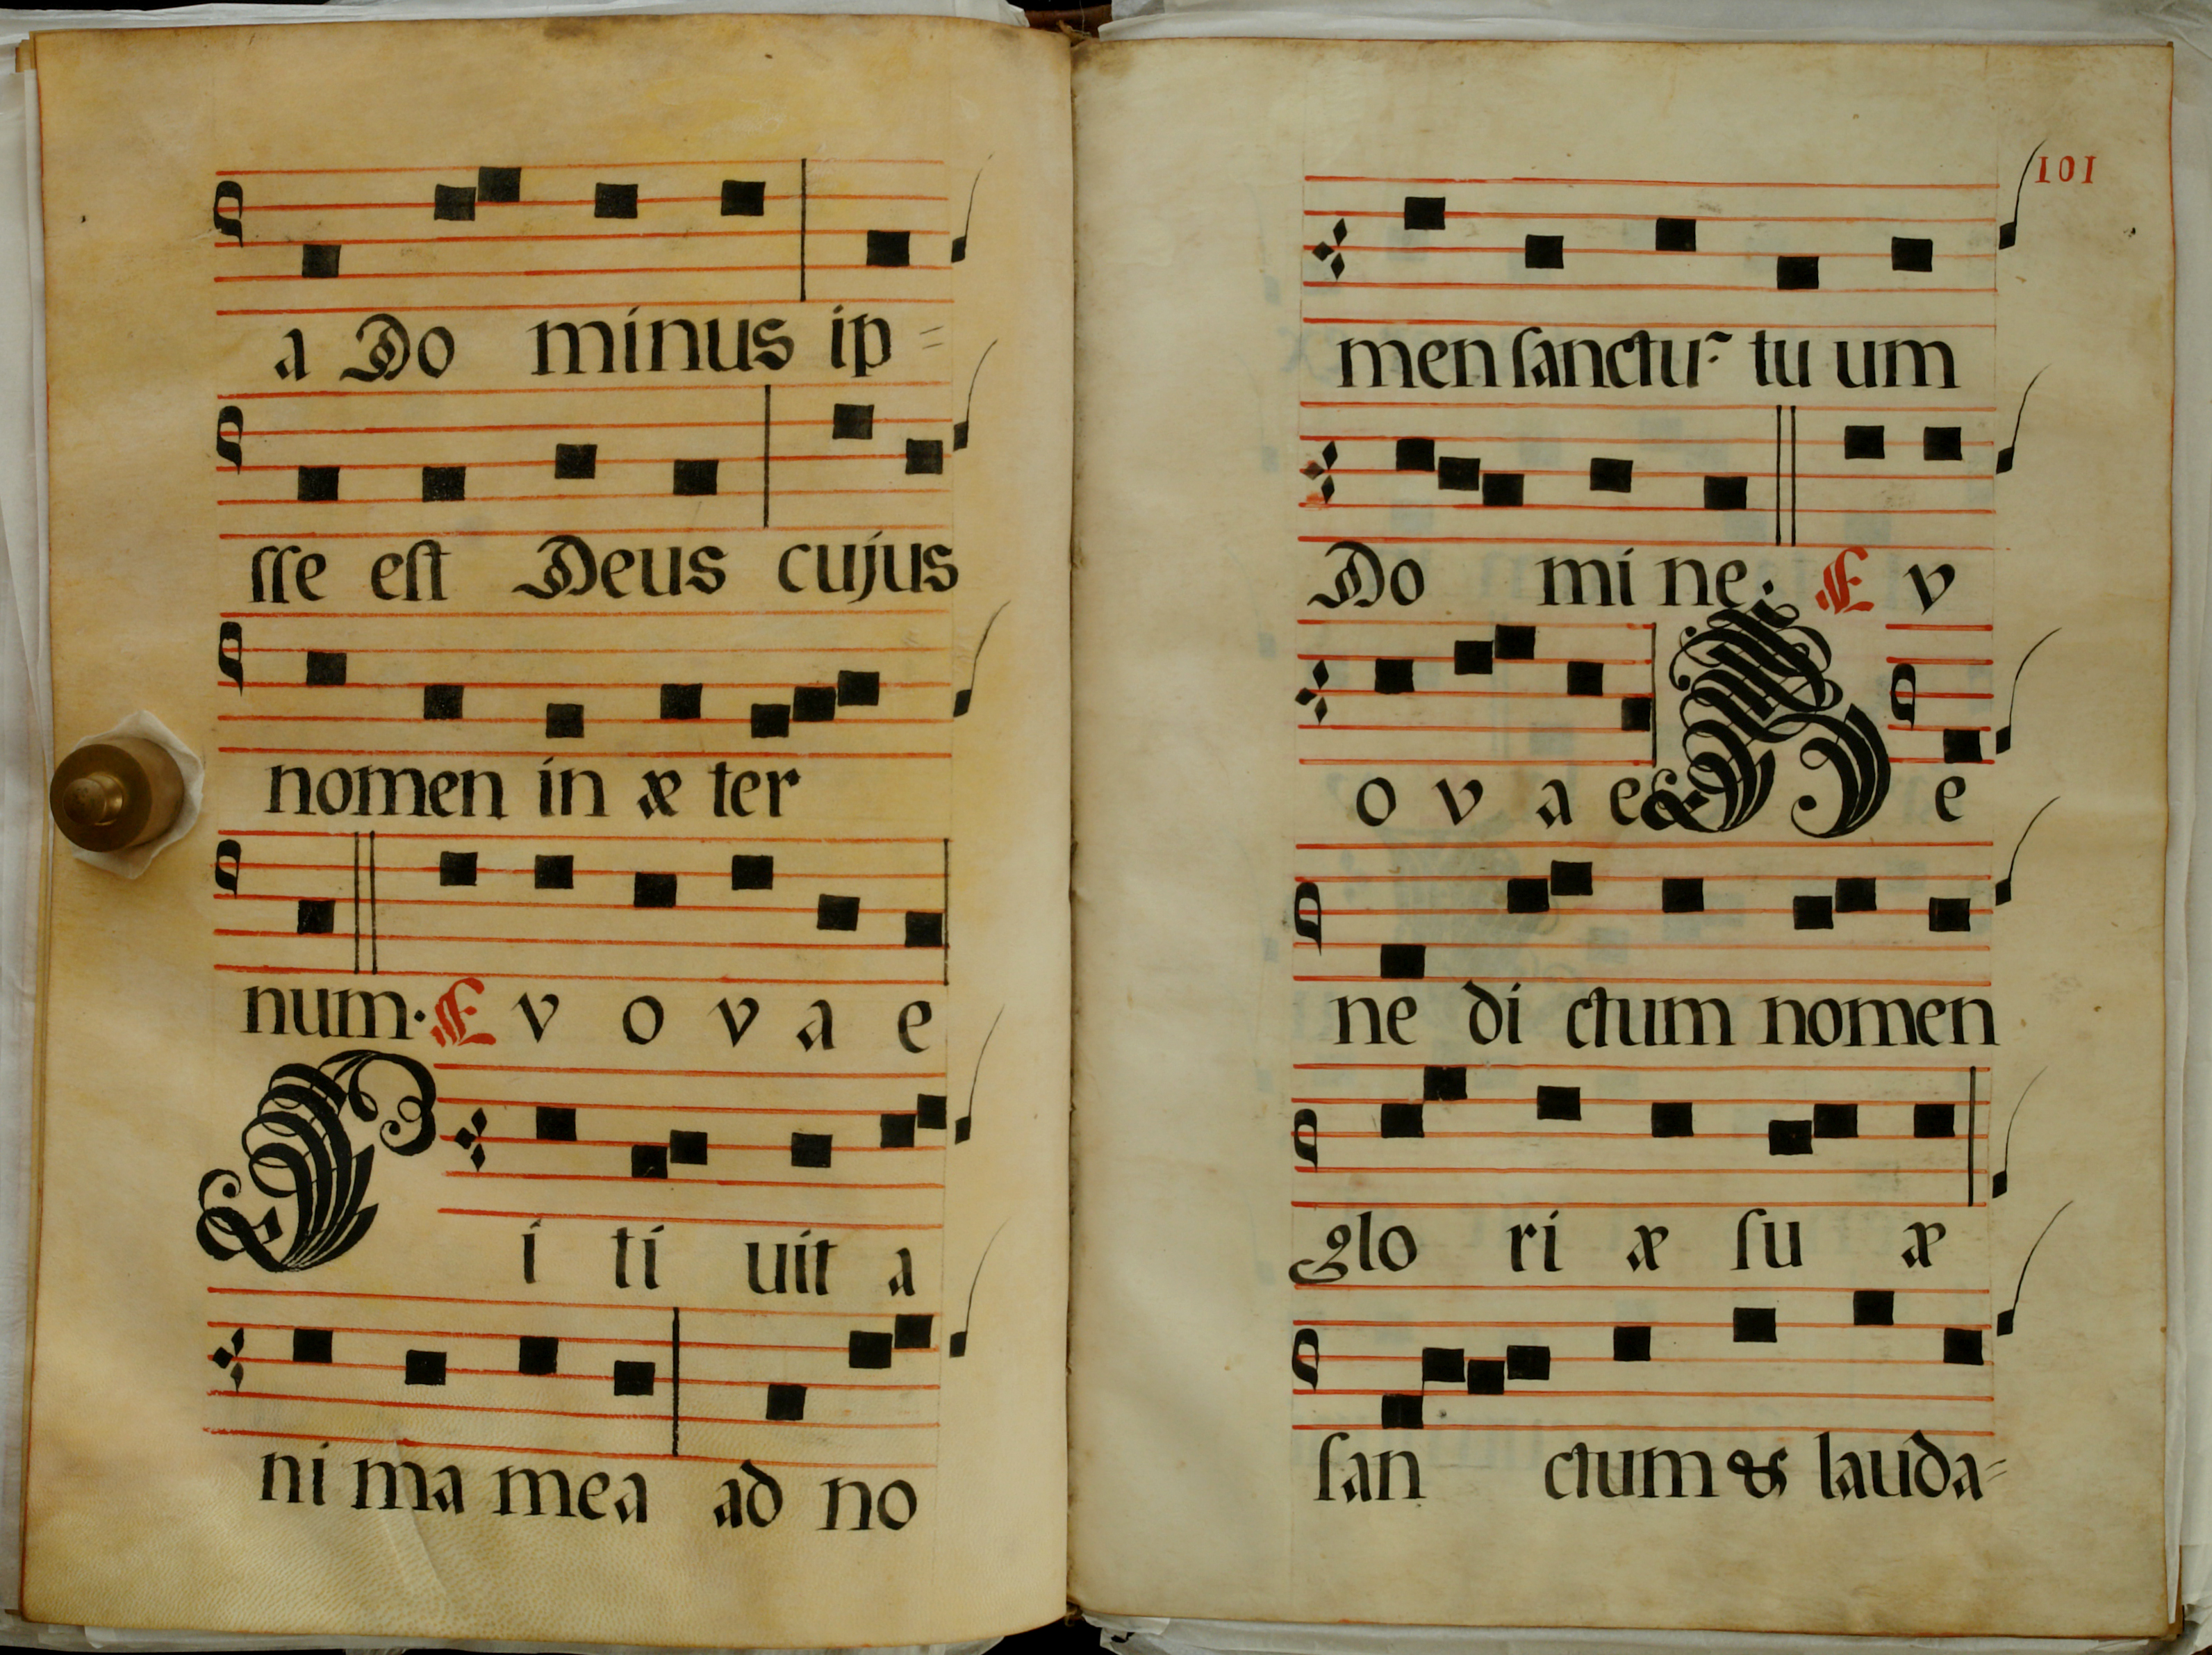 a Do minus ip=
sse est Deus cujus
nomen in æ ter
num. E v o v a e
S i ti uit a
ni ma mea ad no
101
men sanctũ tu um
Do mi ne. E v
o v a e B e
ne di ctum nomen
glo ri æ su æ
san ctum & lauda=